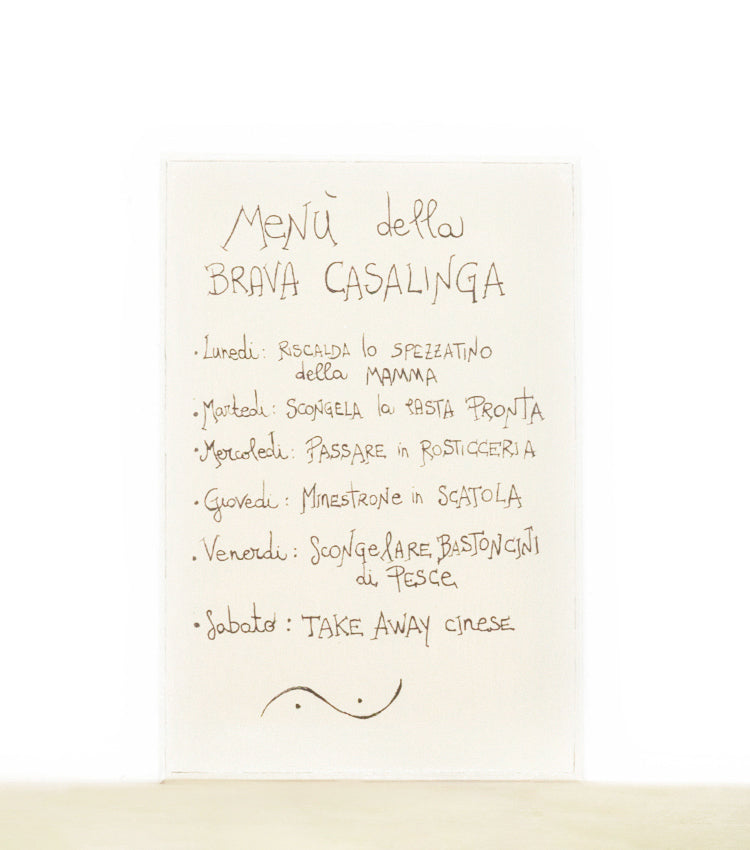 MENÙ della
BRAVA CASALINGA
• Lunedi: RISCALDA lo SPEZZATINO
della MAMMA
• Martedi: SCONGELA la PASTA PRONTA
• Mercoledi: PASSARE in ROSTICCERIA
• Giovedi: MINESTRONE in SCATOLA
• Venerdi: SCONGELARE BASTONCINI
di PESCE
• Sabato: TAKE AWAY cinese